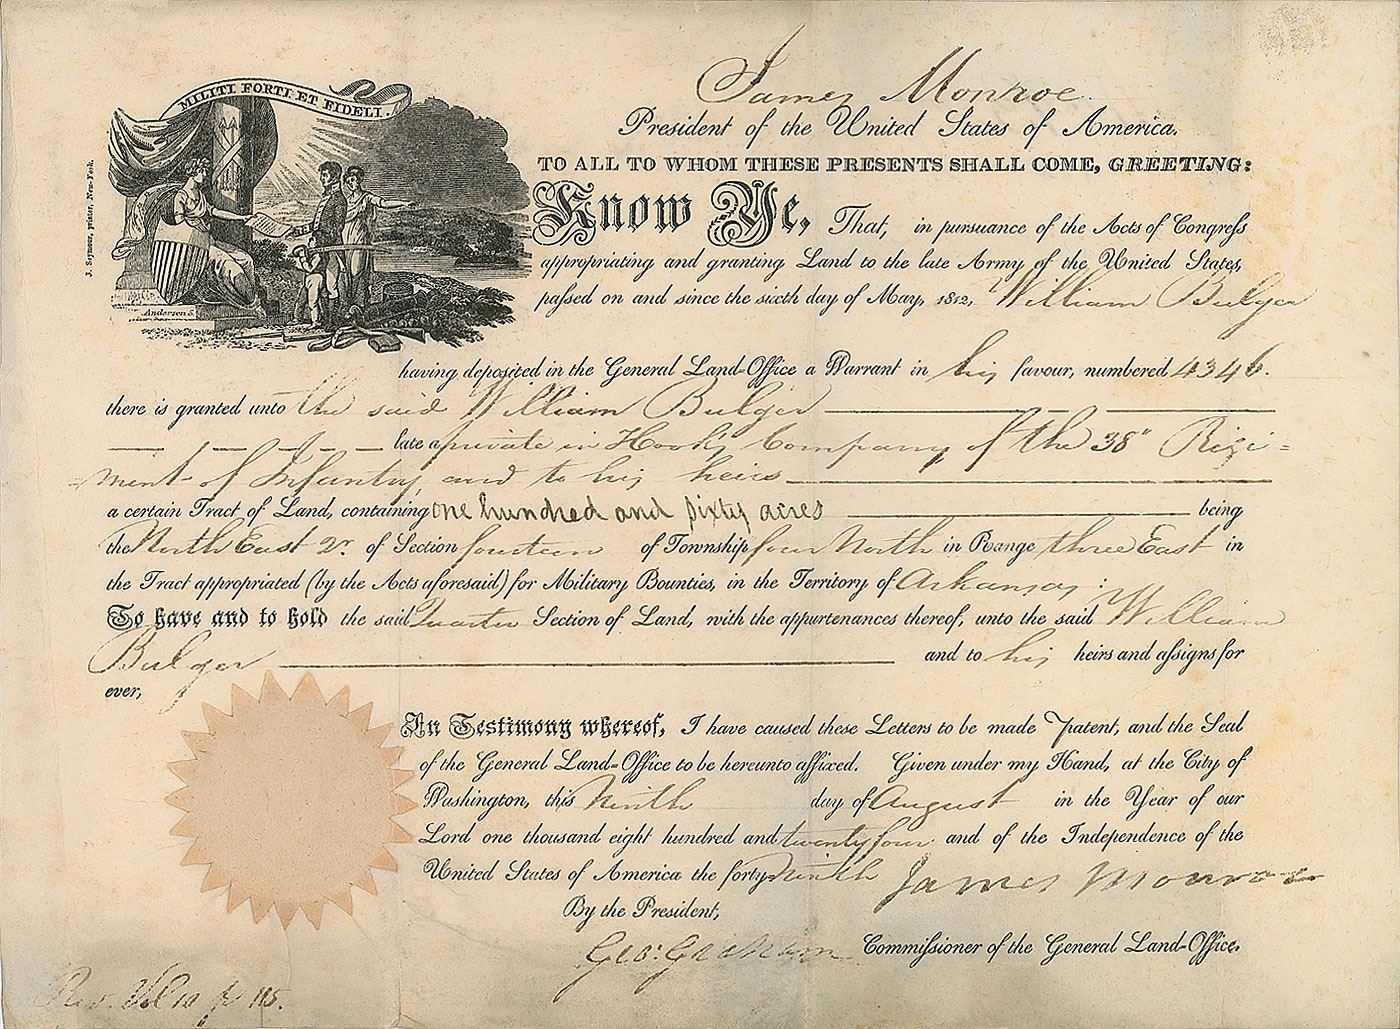 MILITI FORTI ET FIDELI.
J. Seymour, printer, New-York.
Anderson S.
James Monroe
President of the United States of America.
TO ALL TO WHOM THESE PRESENTS SHALL COME, GREETING:
Know Ye, That, in pursuance of the Acts of Congreſs
appropriating and granting Land to the late Army of the United States,
paſsed on and since the sixth day of May, 1812, William Bulger
having deposited in the General Land-Office a Warrant in his favour, numbered 4346.
there is granted unto the said William Bulger
late a private in Hook's Company of the 38" Regi=
=ment of Infantry, and to his heirs
a certain Tract of Land, containing one hundred and sixty acres being
the North East Qr. of Section fourteen of Township four North in Range three East in
the Tract appropriated (by the Acts aforesaid) for Military Bounties, in the Territory of Arkansas:
To have and to hold the said Quarter Section of Land, with the appurtenances thereof, unto the said William
Bulger and to his heirs and aſsigns for
ever,
In Testimony whereof, I have caused these Letters to be made Patent, and the Seal
of the General Land-Office to be hereunto affixed. Given under my Hand, at the City of
Washington, this Ninth day of August in the Year of our
Lord one thousand eight hundred and twenty four and of the Independence of the
United States of America the forty ninth James Monroe
By the President,
Geo: Graham Commiſsioner of the General Land-Office.
Rec. Vol 10 p 115.